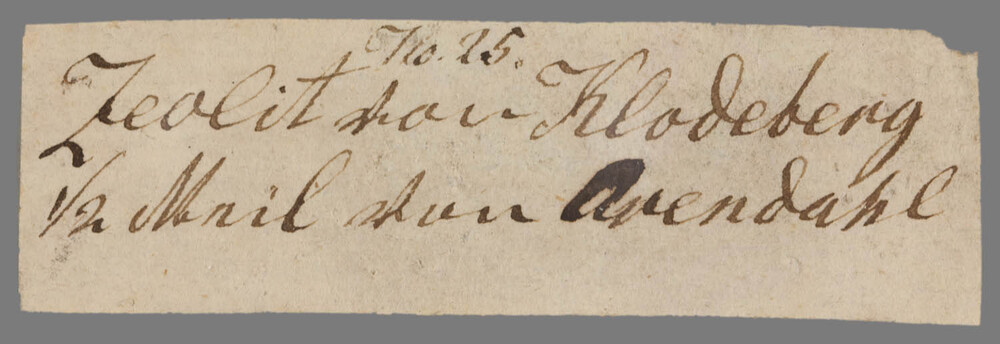 No. 25.
Zeolit von Klodeberg
1/2 Meil von Arendahl